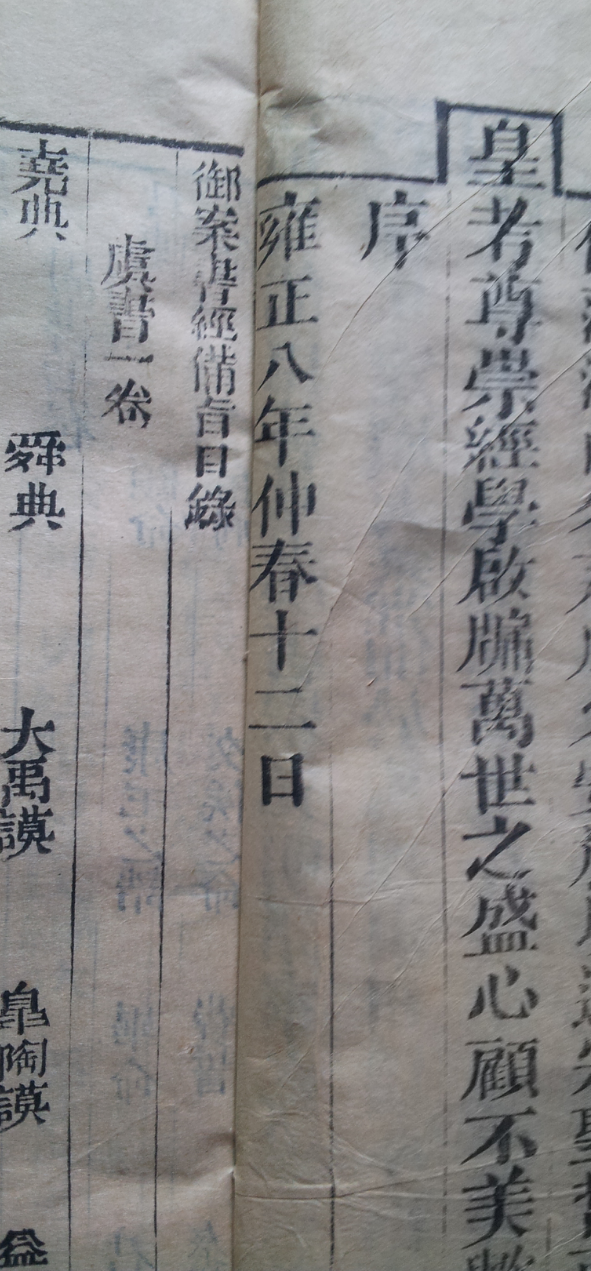 皇考尊崇經學啟牖萬世之盛心顧不美
序
雍正八年仲春十二日
御案書經備旨目錄
虞書一卷
堯典 舜典 大禹謨 皐陶謨 益